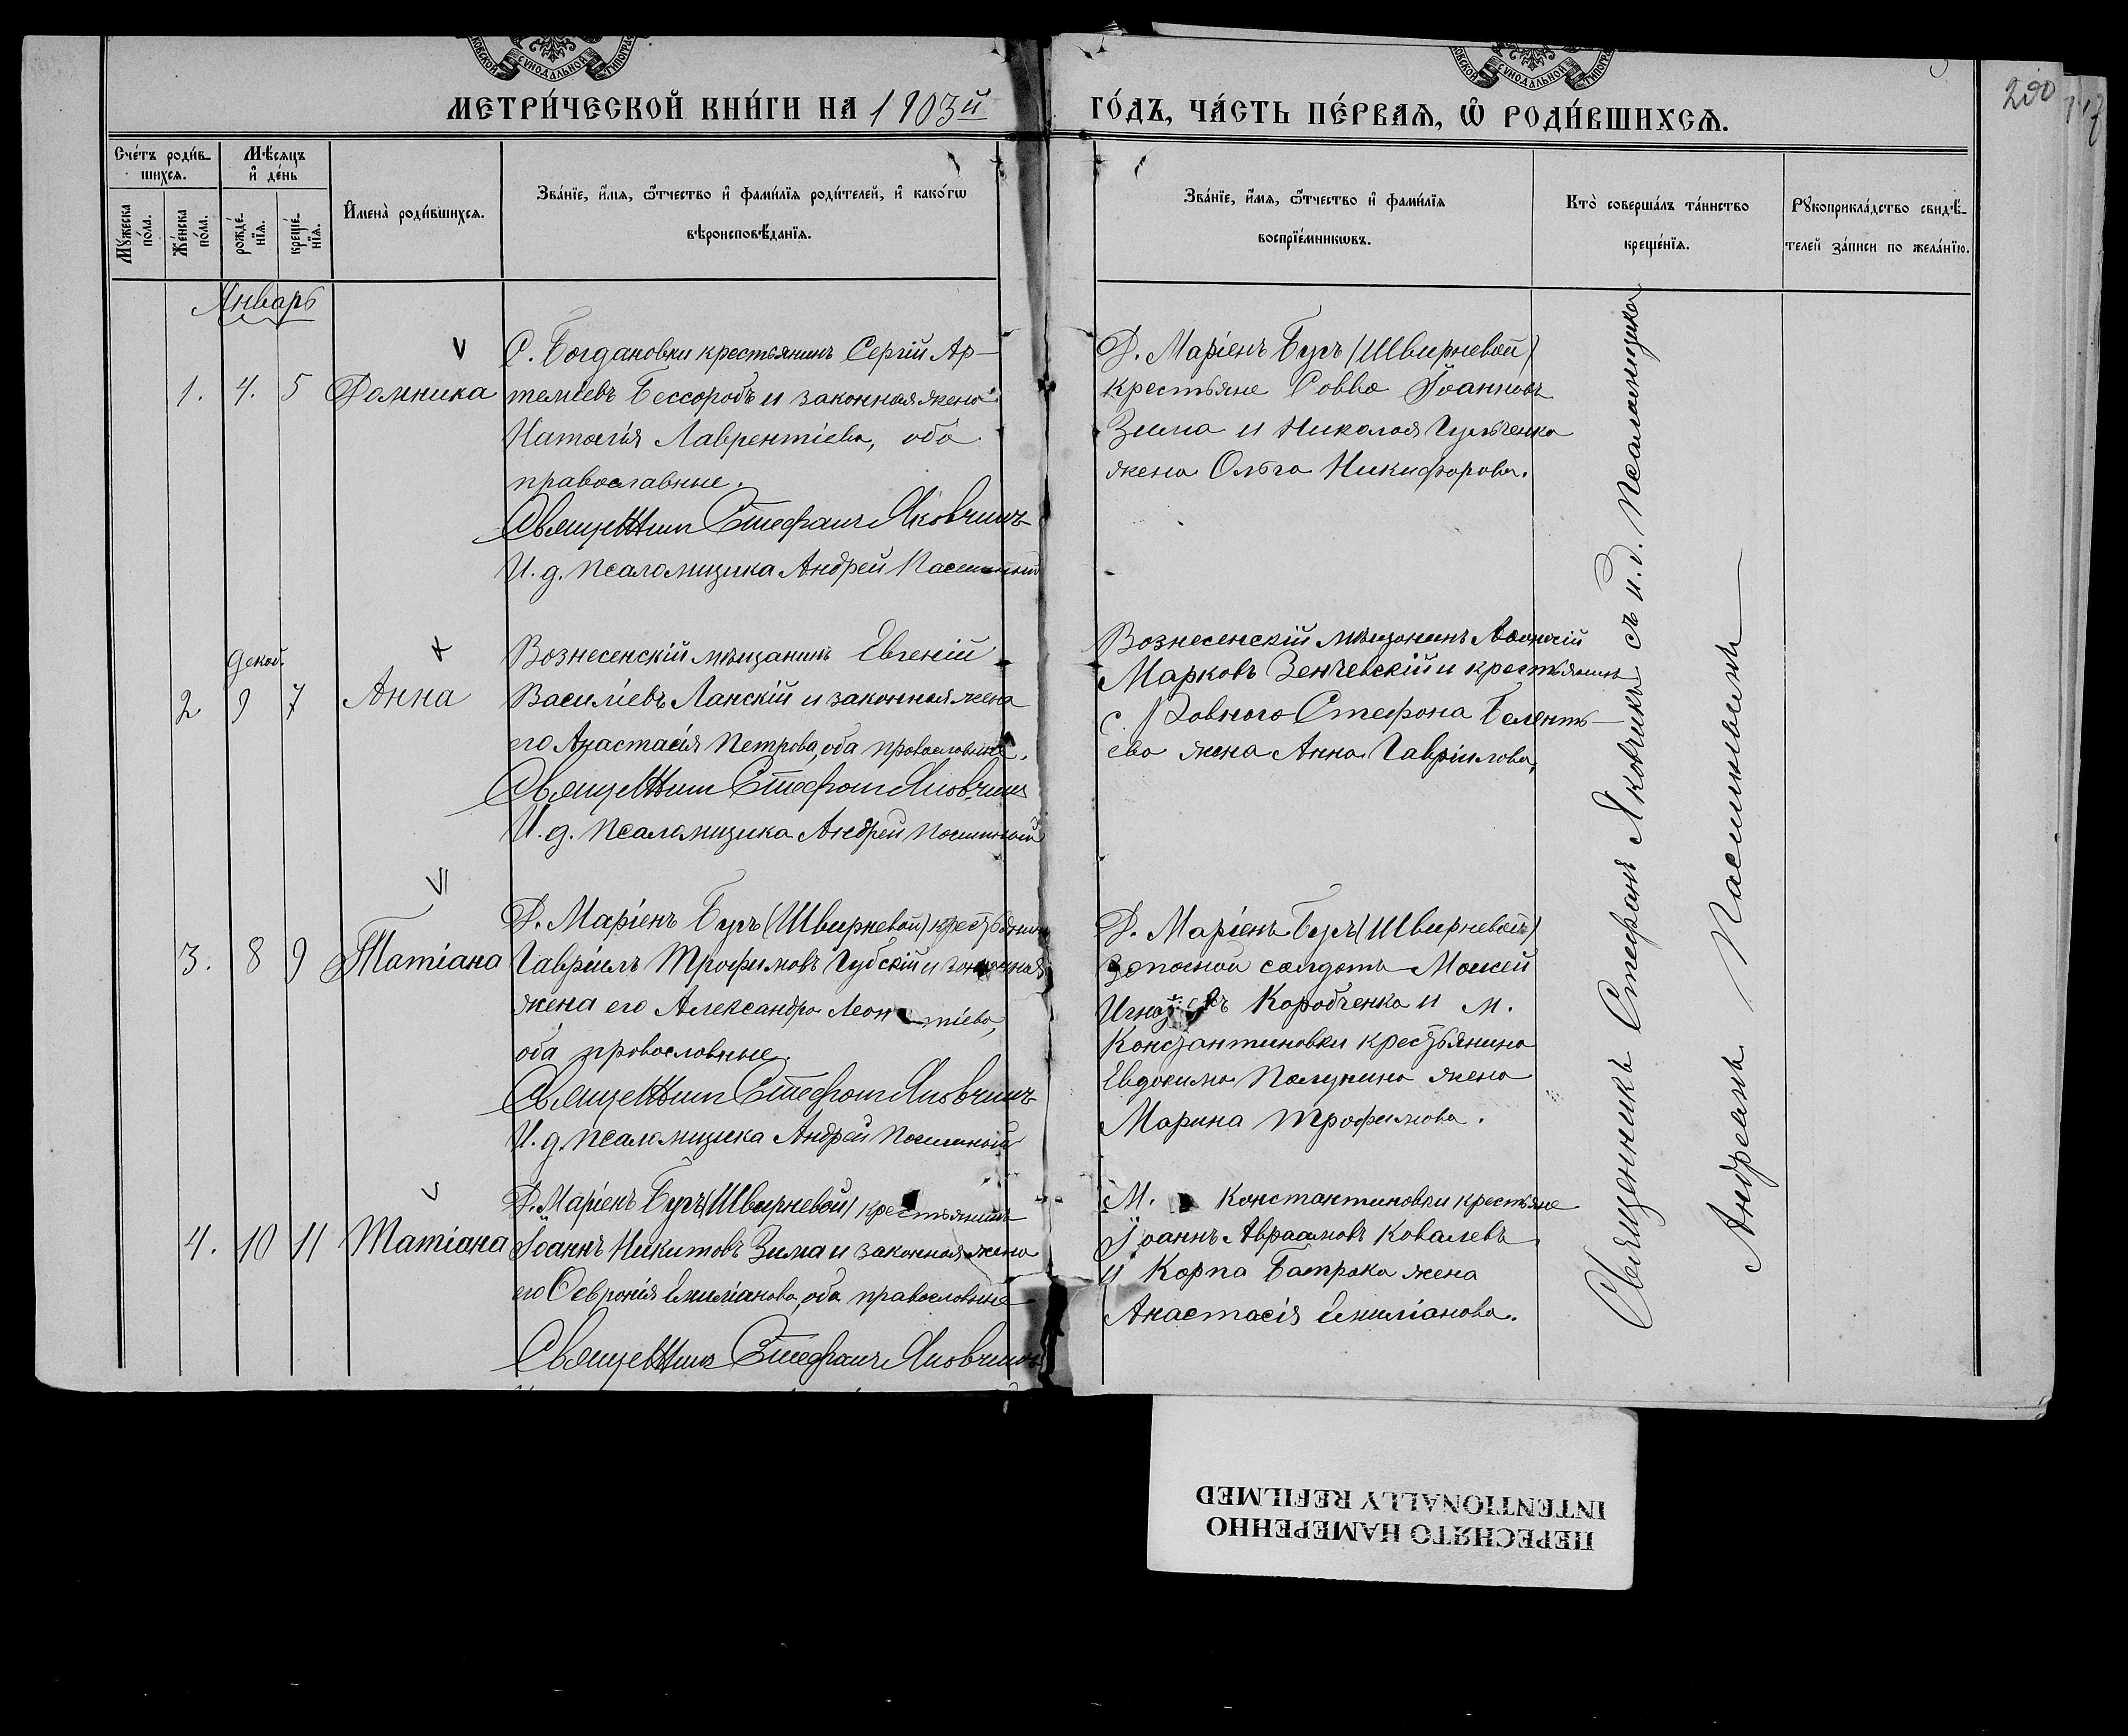 МЕТРИ́ЧЕСКОЙ КНИ́ГИ НА 1903й ГО́ДЪ, ЧА́СТЬ ПЕ́РВАЯ, Ѡ҆ РОДИ́ВШИХСѦ.
200
Сче́тъ роди́в-
шихсѧ.
Мѣ́сѧцъ
и҆ де́нь
Мꙋ́жеска
по́ла.
Же́нска
по́ла.
рожде́-
нїѧ.
креще́-
нїѧ.
И҆мена̀ роди́вшихсѧ.
Зва́нїе, и҆́мѧ, ѻ҆́тчество и҆ фами́лїѧ роди́телей, и҆ како́гѡ
вѣроисповѣ́данїѧ.
Зва́нїе, и҆́мѧ, ѻ҆́тчество и҆ фами́лїѧ
воспрїе́мникѡвъ.
Кто̀ соверша́лъ та́инство
креще́нїѧ.
Рꙋкоприкла́дство свидѣ́-
телей за́писи по жела́нїю.
Январь
1. 4. 5 Домника
С. Богдановки крестьянинъ Сергій Ар-
теміевъ Бессоробъ и законная жена
Наталія Лаврентіева, оба
православные.
Священник Стефанъ Яковчикъ
И. д. псаломщика Андрей Пасишный
Д. Маріенъ Бугъ (Швырневой)
крестьяне Савва Іоанновъ
Зима и Николая Гульченка
жена Ольга Никифорова.
декаб.
2 9 7 Анна
Вознесенскій мѣщанинъ Евгеній
Василіевъ Ланскій и законная жена
его Анастасія Петрова, оба православные.
Священник Стефанъ Яковчикъ
И. д. псаломщика Андрей Пасишный
Вознесенскій мѣщанинъ
Марковъ Зенчевскій и крестьянина
с. Ровного Стефана Белент-
ева жена Анна Гавріилова.
3. 8 9 Татіана
Д. Маріенъ Бугъ (Швырневой) крестьянинъ
Гавріилъ Трофимовъ Губскій и законная
жена его Александра Леонтіева,
оба православные.
Священник Стефанъ Яковчикъ
И. д. псаломщика Андрей Пасишный
Д. Маріенъ Бугъ (Швырневой)
запасной солдатъ Моисей
Игнатіевъ Коробченко и м.
Константиновки крестьянина
Евдокима Палунина жена
Марина Трофимова.
4. 10 11 Татіана
Д. Маріенъ Бугъ (Швырневой) крестьянинъ
Іоаннъ Никитовъ Зима и законная жена
его Февронія Емиліанова, оба православные
Священник Стефанъ Яковчикъ
М. Константиновки крестьяне
Іоаннъ Авраамовъ Ковалевъ
и Карпа Батрака жена
Анастасія Емиліанова.
Священникъ Стефанъ Яковчикъ съ и. д. псаломщика
Андреемъ Пасишнымъ
ПЕРЕСНЯТО НАМЕРЕННО
INTENTIONALLY REFILMED